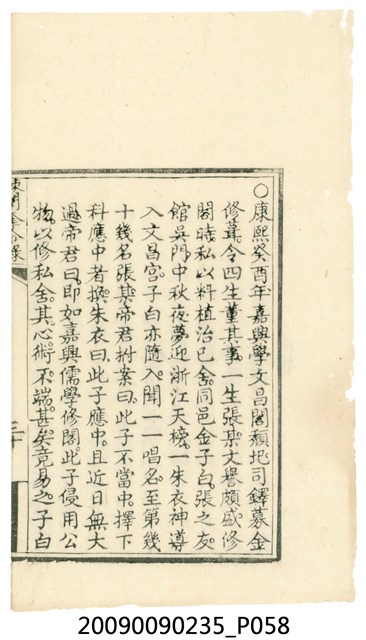 ○康熙癸酉年嘉興學文昌閣頹圮司鐸募金
修葺令四生董其事一生張某文譽頗盛修
閣時私以料植治已舍同邑金子白張之友
館吳門中秋夜夢迎浙江天榜一朱衣神導
入文昌宮子白亦隨入聞一一唱名至第幾
十幾名張某帝君拊案曰此子不當中擇下
科應中者換朱衣曰此子應中且近日無大
過帝君曰即如嘉興儒學修閣此子侵用公
物以修私舍其心術不端甚矣竟易之子白
20090090235_P058